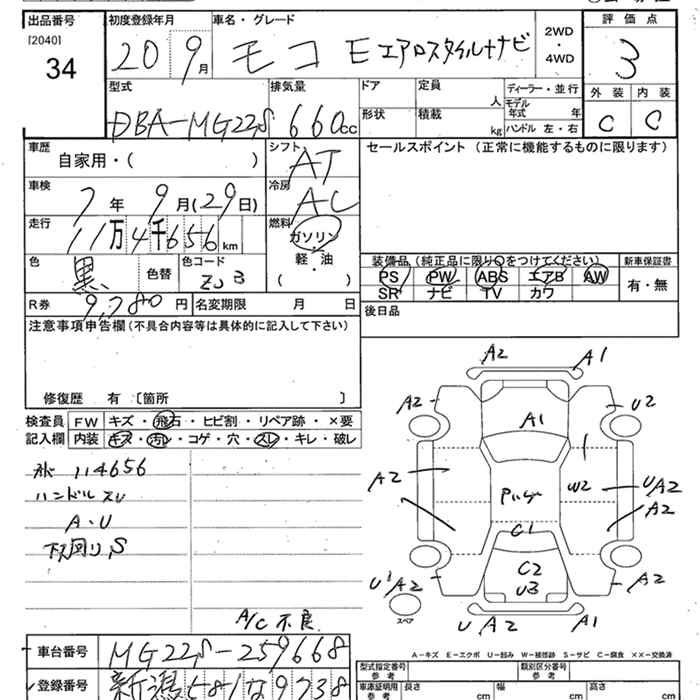 出品番号 [2040] 34
初度登録年月 20 9月
車名・グレード モコ E エアロスタイル+ナビ
2WD・4WD
評価点 3
型式 DBA-MG22S
排気量 660cc
ドア
形状
定員 人
積載 kg
ディーラー・並行
モデル年式 年
ハンドル 左・右
外装 C
内装 C
車歴 自家用・( )
シフト AT
セールスポイント (正常に機能するものに限ります)
車検 7年 9月(29日)
冷房 AC
走行 11万4千656km
燃料 ガソリン・軽・油 ( )
色 黒 色替
色コード ZJ3
装備品 (純正品に限り○をつけてください)
新車保証書 有・無
PS PW ABS エアB AW
SR ナビ TV カワ
R券 9,780円
名変期限 月 日
後日品
注意事項申告欄(不具合内容等は具体的に記入して下さい)
修復歴 有 [箇所 ]
検査員記入欄
FW キズ・飛石・ヒビ割・リペア跡・×要
内装 キズ・汚レ・コゲ・穴・スレ・キレ・破レ
114656
ハンドル スレ
A・U
下回り.S
A/C 不良
A2 A1
A2 U2
A1
A2 W2 UA2
A2
Pルーフ
C1
C2
U3
U1A2 A2
スペア
UA2 A1
A-キズ E-エクボ U-凹み W-補修跡 S-サビ C-腐食 ××-交換済
車台番号 MG22S-259668
型式指定番号 参考
類別区分番号 参考
登録番号 新潟581な9738
車庫証明用 参考 長さ cm 幅 cm 高さ cm